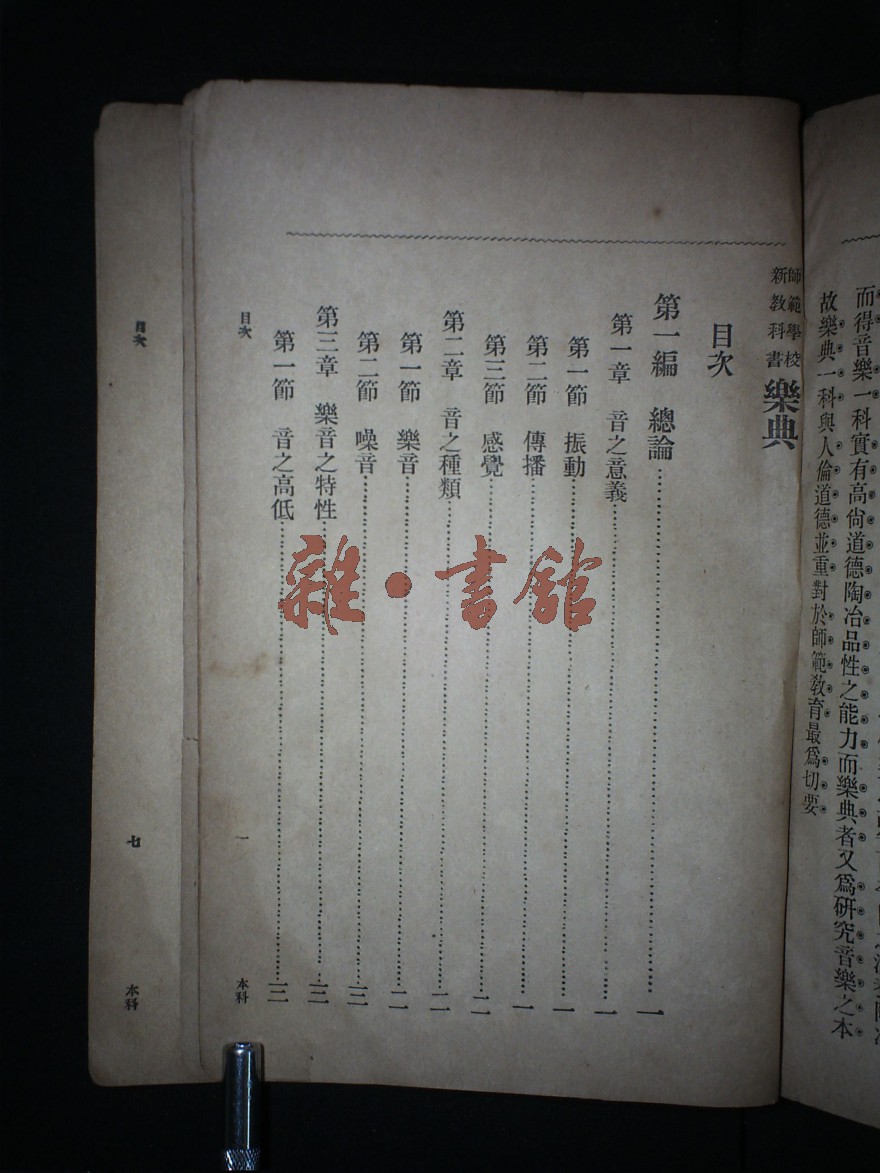 而得音樂一科實有高尙道德陶冶品性之能力而樂典者又爲硏究音樂之本
故樂典一科與人倫道德並重對於師範敎育最爲切要
師範學校
新教科書
樂典
目次
第一編 總論 一
第一章 音之意義 一
第一節 振動 一
第二節 傳播 一
第三節 感覺 二
第二章 音之種類 二
第一節 樂音 二
第二節 噪音 三
第三章 樂音之特性 三
第一節 音之高低 三
目次 一 本科
目次 七 本科
雜·書館